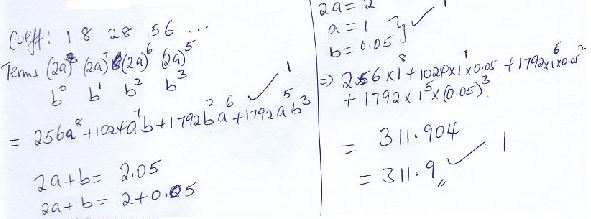 Coeff: 1 8 28 56 ...
Terms (2a)⁸ (2a)⁷ (2a)⁶ (2a)⁵
b⁰ b¹ b² b³
= 256a⁸ + 1024a⁷b + 1792b²a⁶ + 1792a⁵b³ 1
2a + b = 2.05
2a + b = 2 + 0.05
2a = 2
a = 1 } 1
b = 0.05
⇒ 256 × 1⁸ + 1024 × 1⁷ × 0.05 + 1792 × 1⁶ × 0.05²
+ 1792 × 1⁵ × (0.05)³
= 311.904
= 311.9 1